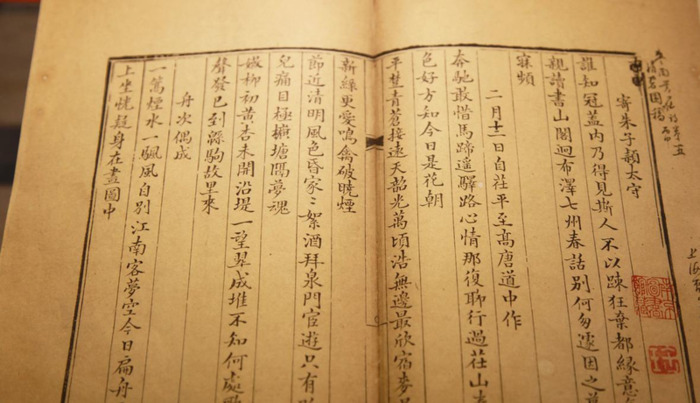 寄朱子穎太守
誰知冠蓋内乃得見斯人不以踈狂棄都縁意
親讀書山閣迥布澤七州春話别何匆遽因之
寐頻
二月十二日自茌平至高唐道中作
奔馳敢惜馬蹄遥驛路心情那復聊行過茌山
色好方知今日是花朝
平楚青蒼接遠天韶光萬頃浩無邊最欣宿麥
新緑更愛鳴禽破曉煙
節近清明風色昏家〻絮酒拜泉門官遊只有
兒痛目極横塘隔夢魂
城柳初黄杏未開沿堤一望翠成堆不知何處
聲發已到緜駒故里來
舟次偶成
一篙煙水一颿風自别江南客夢空今日扁舟
上坐恍疑身在畫圖中